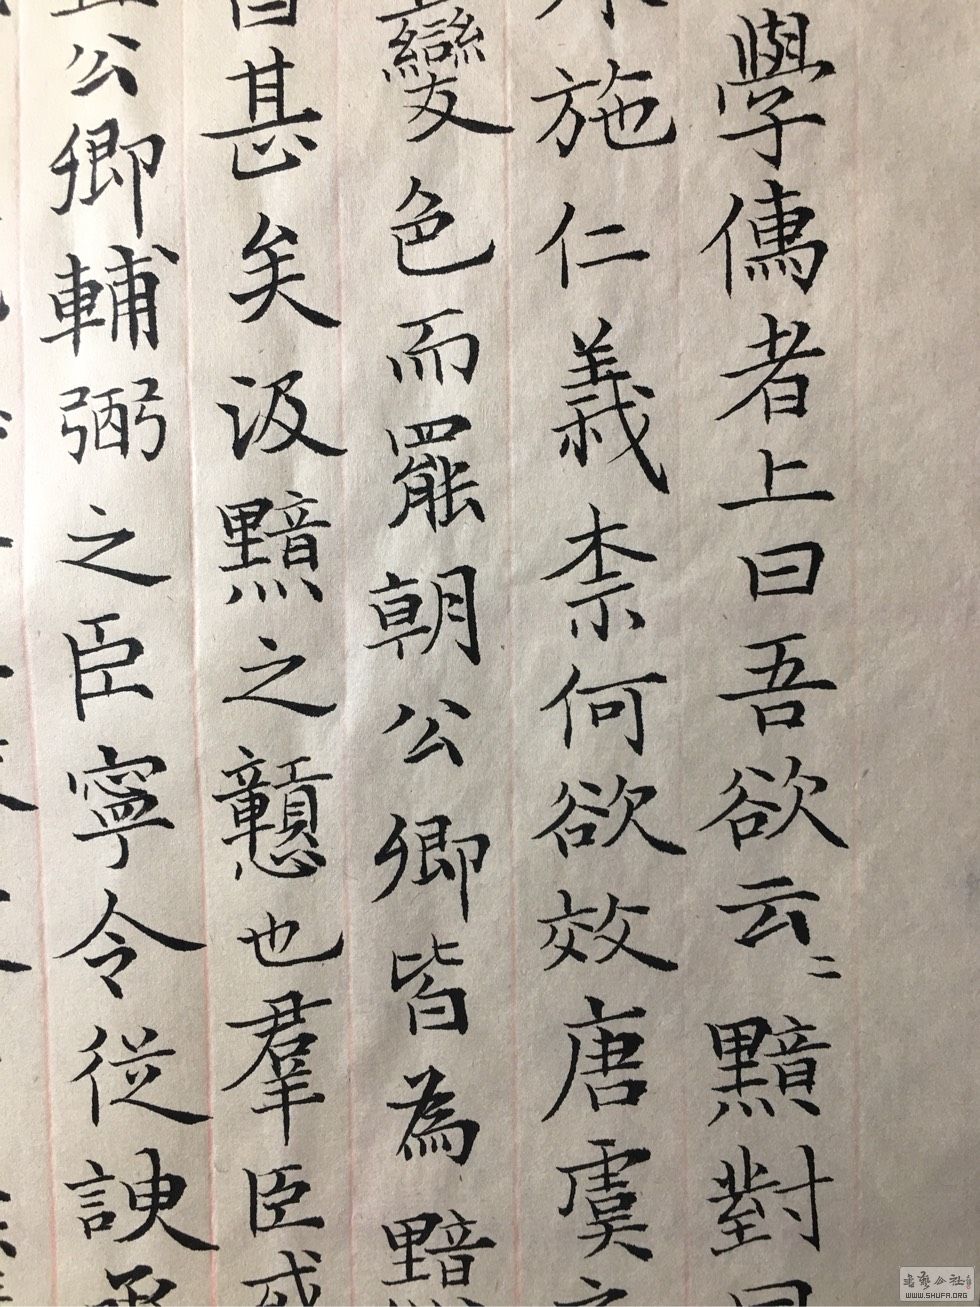 學儒者上曰吾欲云〻黯對曰
施仁義柰何欲效唐虞之
變色而罷朝公卿皆為黯
甚矣汲黯之戇也羣臣或
公卿輔弼之臣寧令從諛承
書藝公社
WWW.SHUFA.ORG